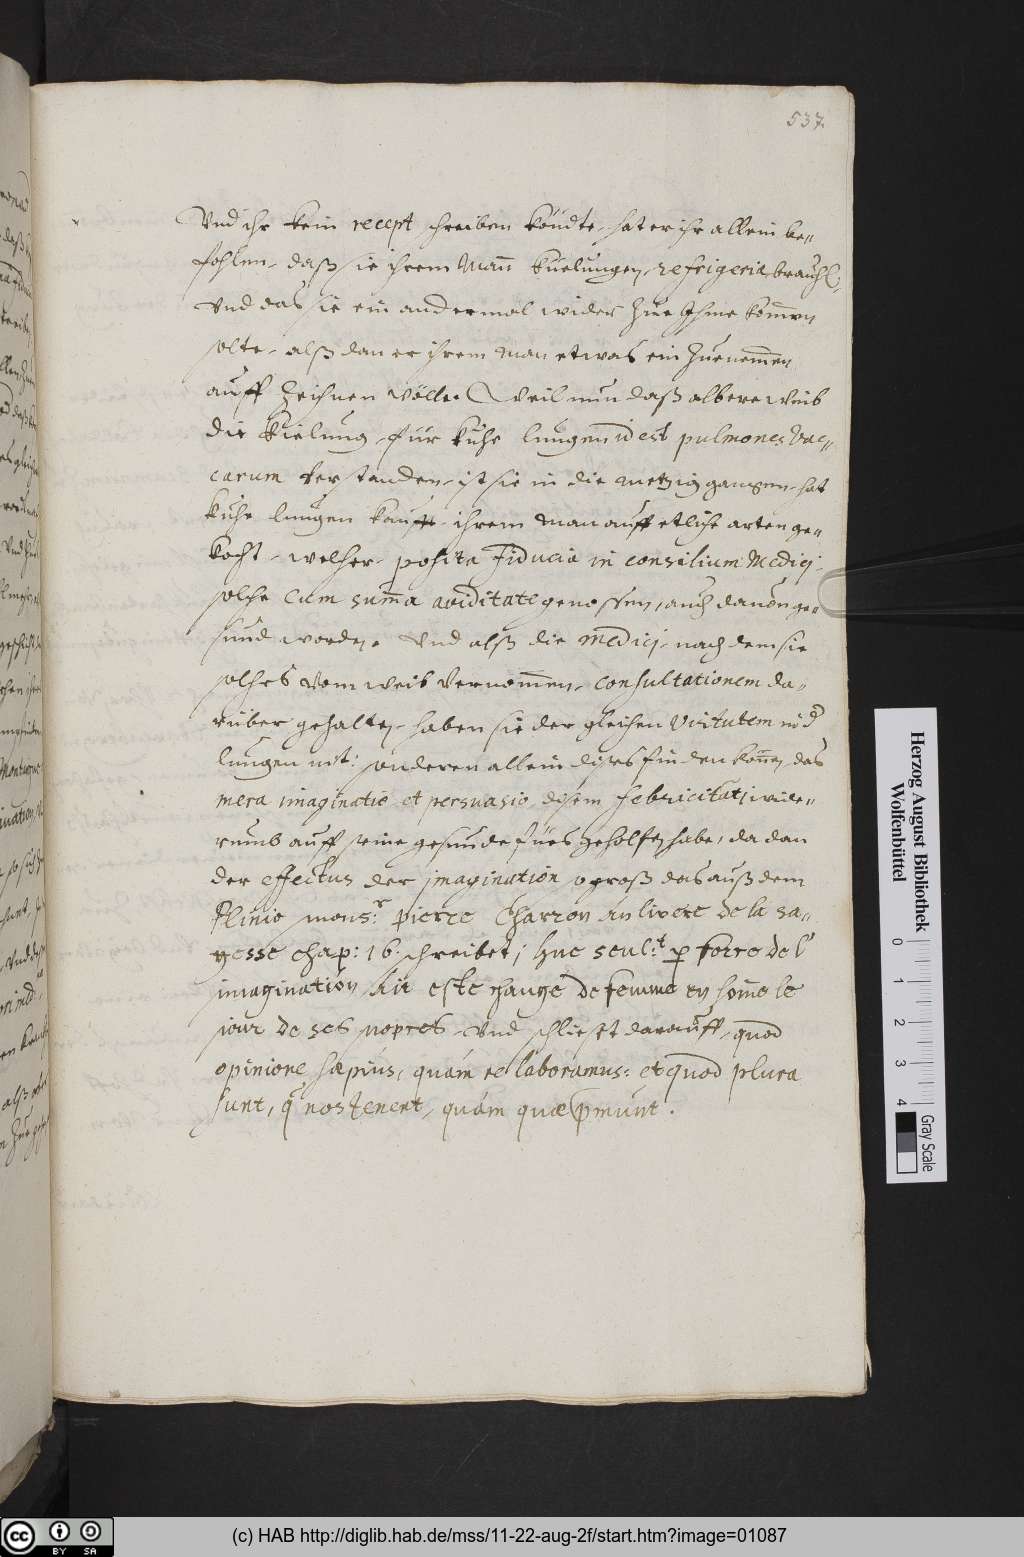 537.
Vnd ihr kein recept schreiben köndte, hat er ihr allein be-
fohlen, daß sie ihrem Mañ kuelungen, refrigeria brauche,
vnd das sie ein andermal wider zue Ihme kom̃en
solte, alß dan er ihrem man etwas ein zuenem̃en
auff zeichnen wölle. Weil nun daß albere weib
die kielung, für kühe lungen id est pulmones vac-
carum verstanden, ist sie in die metzig gangen, hat
kühe lungen kaufft, ihrem man auff etliche arten ge-
kocht, welcher, posita fiducia in consilium Medici,
solche cum sum̃a aviditate genossen, auch davon ge-
sund worden. Vnd alß die medici, nach dem sie
solches vom weib vernom̃en, consultationem da-
rüber gehalten, haben sie der gleichen virtutem in d
lungen nit: sonderen allein dises finden köñen, das
mera imaginatio et persuasio, disem febricitanti wide-
rumb auff seine gesunde füeß geholfen habe, da dan
der effectus der imagination so groß das auß dem
Plinio mons.r pierre Charron au livre de la sa-
gesse chap: 16. schreibet, Que seul.t p force de l'
imagination hir este changé de femme en hom̃e le
jour de ses nopces, vnd schliest darauff, quod
opinione sæpius, quàm re laboramus: et quod plura
sunt, q nos tenent, quàm quæ pmunt.
Herzog August Bibliothek
Wolfenbüttel
0 1 2 3 4
Gray Scale
cc BY SA
(c) HAB http://diglib.hab.de/mss/11-22-aug-2f/start.htm?image=01087